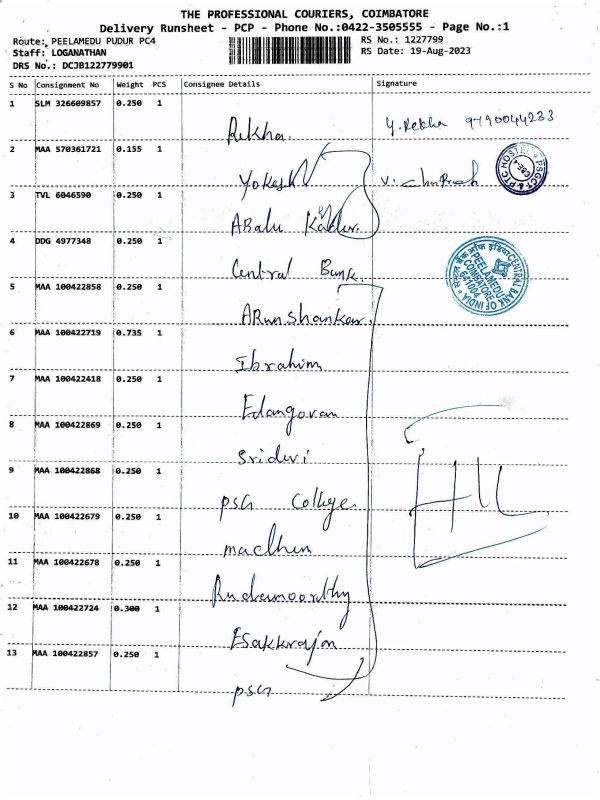 THE PROFESSIONAL COURIERS, COIMBATORE
Delivery Runsheet - PCP - Phone No.:0422-3505555 - Page No.:1
Route: PEELAMEDU PUDUR PC4 RS No.: 1227799
Staff: LOGANATHAN RS Date: 19-Aug-2023
DRS No.: DCJB122779901
S No Consignment No Weight PCS Consignee Details Signature
1 SLM 326609857 0.250 1 Rekha. Y. Rekha 9790044233
2 MAA 570361721 0.155 1 Yokesh
PTC HOSTEL * PSGCT &
3 TVL 6046590 0.250 1 Abalu Kader.
4 DDG 4977348 0.250 1 Central Bank.
CENTRAL BANK OF INDIA * सेन्ट्रल बैंक ऑफ इंडिया
PEELAMEDU
COIMBATORE
641004
5 MAA 100422858 0.250 1 ARunshankar.
6 MAA 100422719 0.735 1 Ibrahim
7 MAA 100422418 0.250 1 Edangovan
8 MAA 100422869 0.250 1 Sridevi
9 MAA 100422868 0.250 1 PSG College
10 MAA 100422679 0.250 1
11 MAA 100422678 0.250 1
12 MAA 100422724 0.300 1 Esakkirajan
13 MAA 100422857 0.250 1 PSG